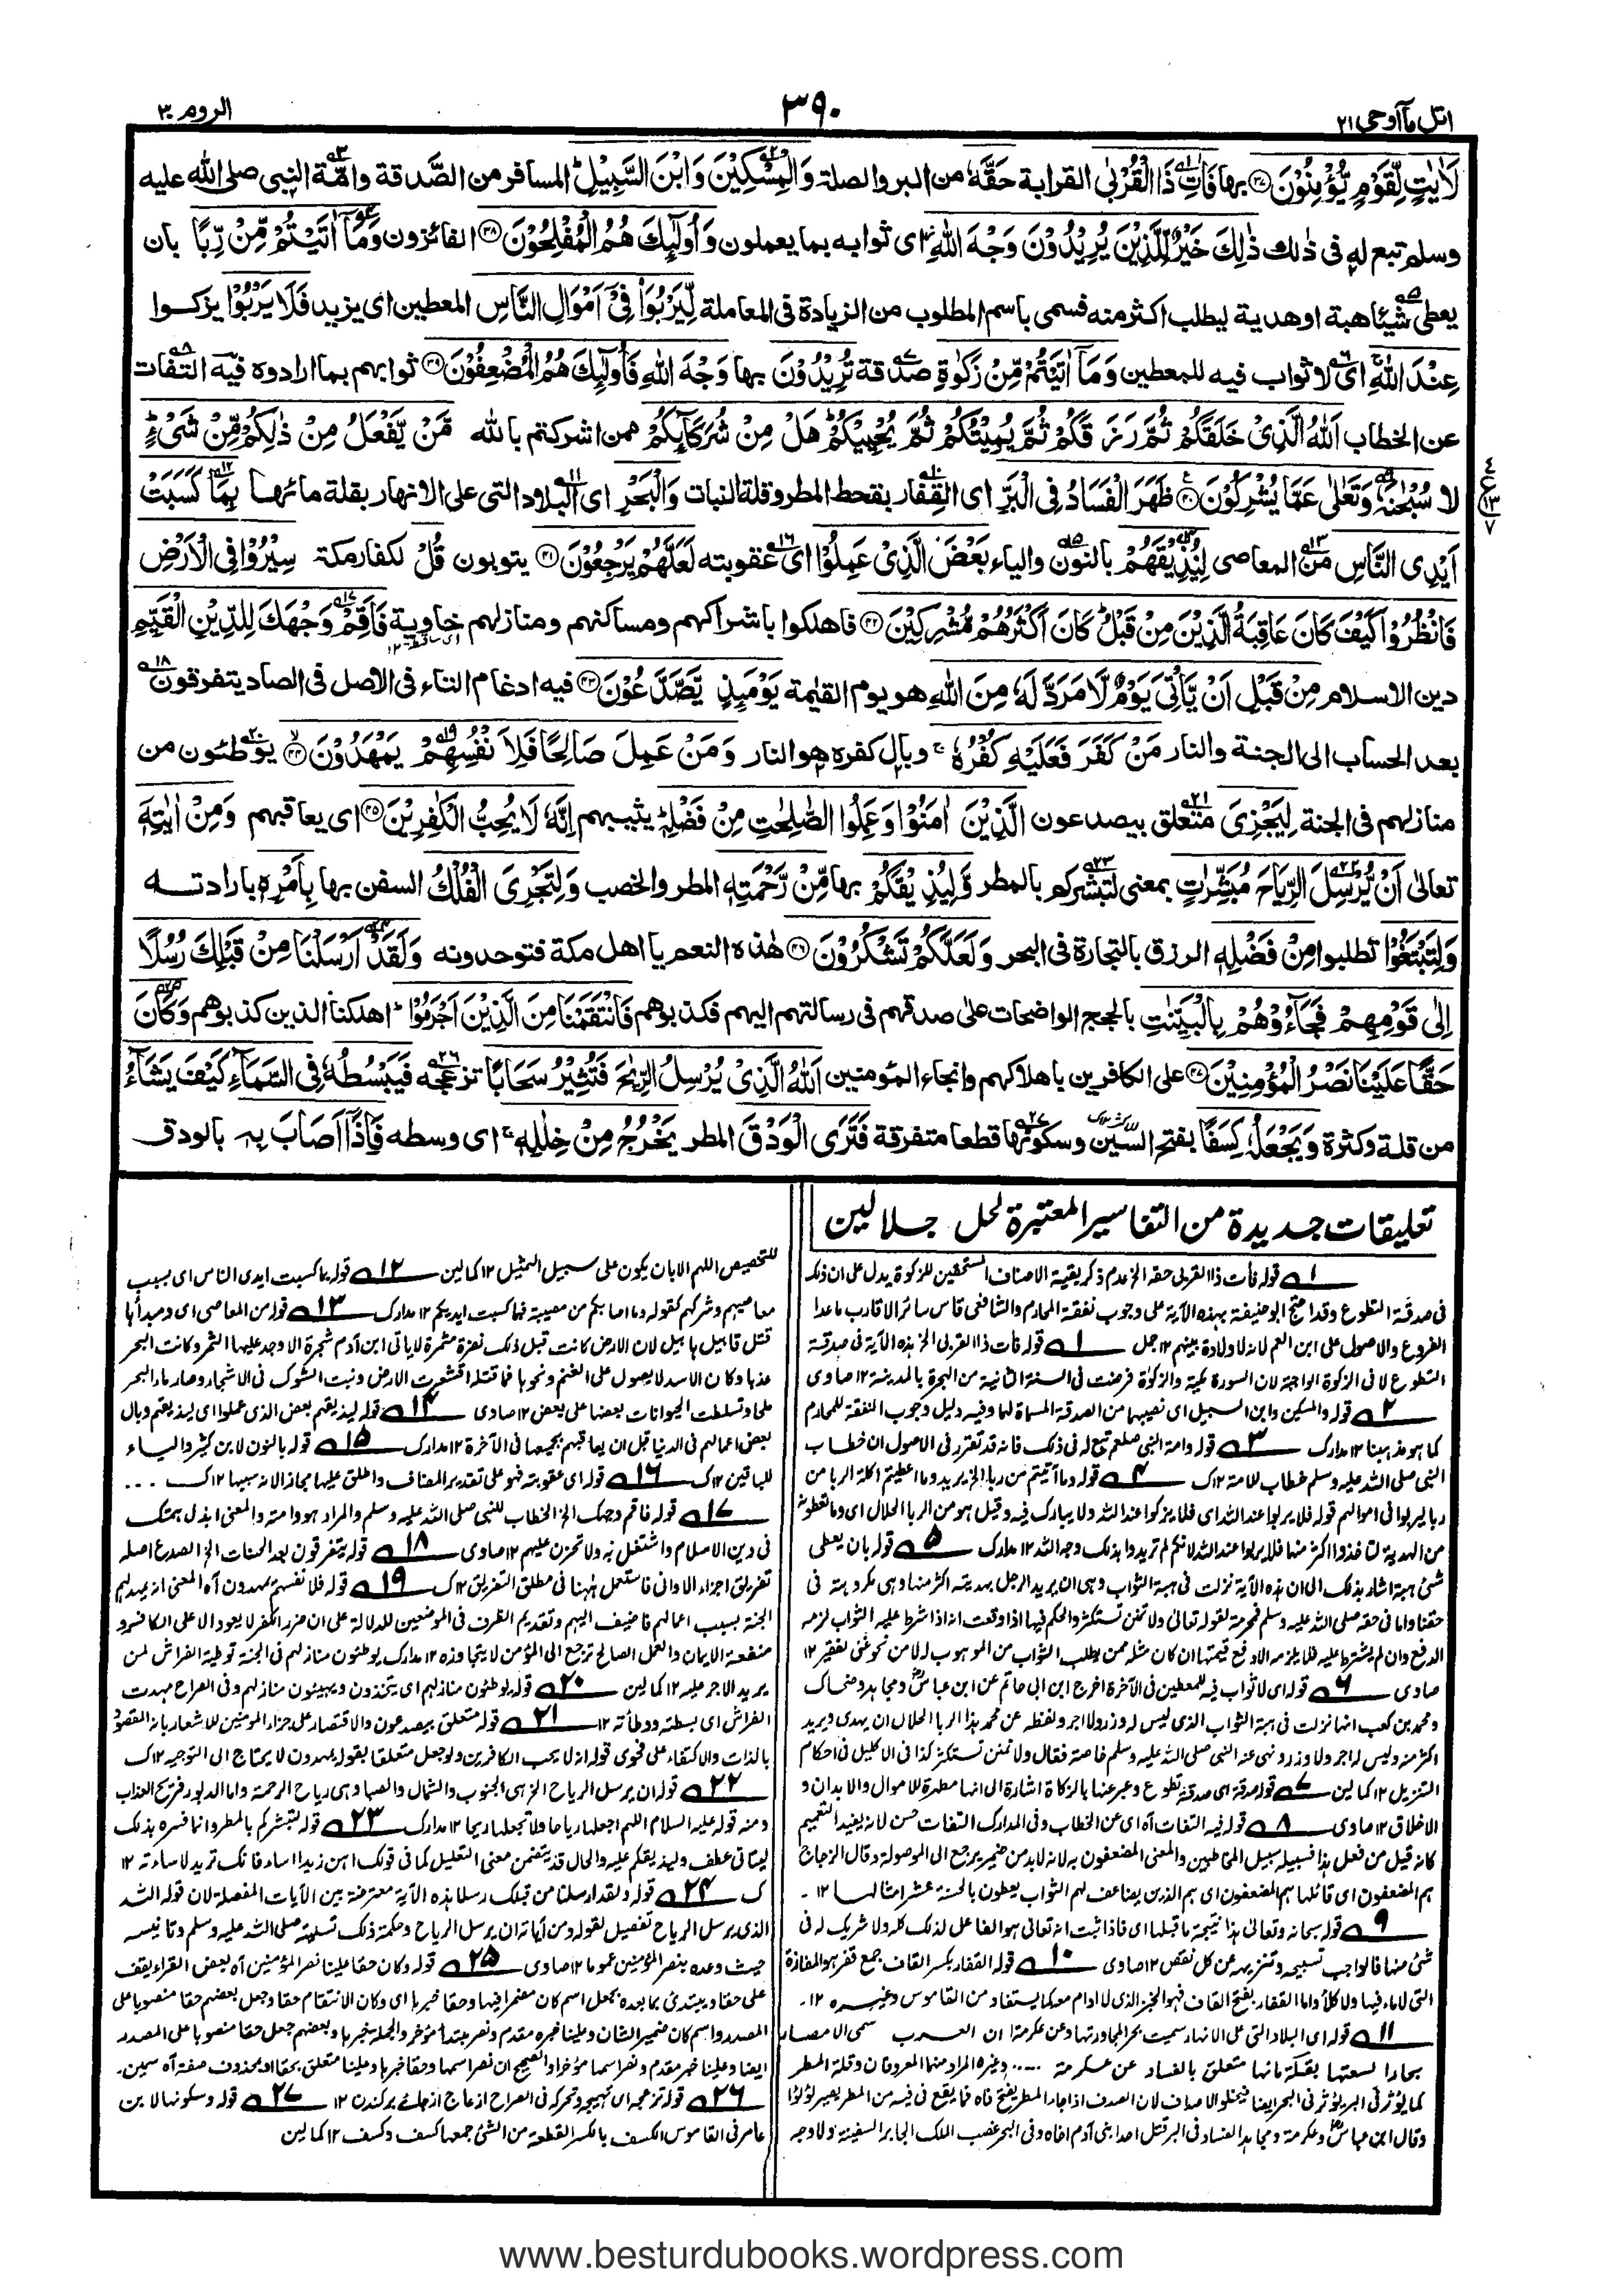 اتل ماأوحى ٢١
٣٩٠
الروم ٣٠
لَاٰيٰتٍ لِّقَوْمٍ يُّؤْمِنُوْنَ ﴿٣٧﴾ بها فَاٰتِ ذَا الْقُرْبٰى القرابة حَقَّهٗ من البر والصلة وَالْمِسْكِيْنَ وَابْنَ السَّبِيْلِ ؕ المسافر من الصَّدقة وامّة النبى صلى الله عليه
وسلم تبع له فى ذٰلك ذٰلِكَ خَيْرٌ لِّلَّذِيْنَ يُرِيْدُوْنَ وَجْهَ اللّٰهِ اى ثوابه بما يعملون وَاُولٰٓئِكَ هُمُ الْمُفْلِحُوْنَ ﴿٣٨﴾ الفائزون وَمَآ اٰتَيْتُمْ مِّنْ رِّبًا بان
يعطى شيئا هبة اوهدية ليطلب اكثر منه فسمى باسم المطلوب من الزيادة فى المعاملة لِّيَرْبُوَا۟ فِىْٓ اَمْوَالِ النَّاسِ المعطين اى يزيد فَلَا يَرْبُوْا يزكوا
عِنْدَ اللّٰهِ اى لا ثواب فيه للمعطين وَمَآ اٰتَيْتُمْ مِّنْ زَكٰوةٍ صدقة تُرِيْدُوْنَ بها وَجْهَ اللّٰهِ فَاُولٰٓئِكَ هُمُ الْمُضْعِفُوْنَ ﴿٣٩﴾ ثوابهم بما ارادوه فيه التفات
عن الخطاب اَللّٰهُ الَّذِىْ خَلَقَكُمْ ثُمَّ رَزَقَكُمْ ثُمَّ يُمِيْتُكُمْ ثُمَّ يُحْيِيْكُمْ ؕ هَلْ مِنْ شُرَكَآئِكُمْ ممن اشركتم بالله مَّنْ يَّفْعَلُ مِنْ ذٰلِكُمْ مِّنْ شَىْءٍ ؕ
لا سُبْحٰنَهٗ وَتَعٰلٰى عَمَّا يُشْرِكُوْنَ ﴿٤٠﴾ ظَهَرَ الْفَسَادُ فِى الْبَرِّ اى القفار بقحط المطر وقلة النبات وَالْبَحْرِ اى البلاد التى على الانهار بقلة مائها بِمَا كَسَبَتْ
اَيْدِى النَّاسِ من المعاصى لِيُذِيْقَهُمْ بالنون والياء بَعْضَ الَّذِىْ عَمِلُوْا اى عقوبته لَعَلَّهُمْ يَرْجِعُوْنَ ﴿٤١﴾ يتوبون قُلْ لكفار مكة سِيْرُوْا فِى الْاَرْضِ
فَانْظُرُوْا كَيْفَ كَانَ عَاقِبَةُ الَّذِيْنَ مِنْ قَبْلُ ؕ كَانَ اَكْثَرُهُمْ مُّشْرِكِيْنَ ﴿٤٢﴾ فاهلكوا باشراكهم ومساكنهم ومنازلهم خاوية فَاَقِمْ وَجْهَكَ لِلدِّيْنِ الْقَيِّمِ
دين الاسلام مِنْ قَبْلِ اَنْ يَّاْتِىَ يَوْمٌ لَّا مَرَدَّ لَهٗ مِنَ اللّٰهِ هو يوم القيٰمة يَوْمَئِذٍ يَّصَّدَّعُوْنَ ﴿٤٣﴾ فيه ادغام التاء فى الاصل فى الصاد يتفرقون
بعد الحساب الى الجنة والنار مَنْ كَفَرَ فَعَلَيْهِ كُفْرُهٗ ۚ وبال كفره هو النار وَمَنْ عَمِلَ صَالِحًا فَلِاَنْفُسِهِمْ يَمْهَدُوْنَ ﴿٤٤﴾ يوطئون من
منازلهم فى الجنة لِيَجْزِىَ متعلق بيصدعون الَّذِيْنَ اٰمَنُوْا وَعَمِلُوا الصّٰلِحٰتِ مِنْ فَضْلِهٖ ؕ يثيبهم اِنَّهٗ لَا يُحِبُّ الْكٰفِرِيْنَ ﴿٤٥﴾ اى يعاقبهم وَمِنْ اٰيٰتِهٖ
تعالىٰ اَنْ يُّرْسِلَ الرِّيَاحَ مُبَشِّرٰتٍ بمعنى لتبشركم بالمطر وَّلِيُذِيْقَكُمْ بها مِّنْ رَّحْمَتِهٖ المطر والخصب وَلِتَجْرِىَ الْفُلْكُ السفن بها بِاَمْرِهٖ بارادته
وَلِتَبْتَغُوْا تطلبوا مِنْ فَضْلِهٖ الرزق بالتجارة فى البحر وَلَعَلَّكُمْ تَشْكُرُوْنَ ﴿٤٦﴾ هٰذه النعم يا اهل مكة فتوحدونه وَلَقَدْ اَرْسَلْنَا مِنْ قَبْلِكَ رُسُلًا
اِلٰى قَوْمِهِمْ فَجَآءُوْهُمْ بِالْبَيِّنٰتِ بالحجج الواضحات على صدقهم فى رسالتهم اليهم فكذبوهم فَانْتَقَمْنَا مِنَ الَّذِيْنَ اَجْرَمُوْا ؕ اهلكنا الذين كذبوهم وَكَانَ
حَقًّا عَلَيْنَا نَصْرُ الْمُؤْمِنِيْنَ ﴿٤٧﴾ على الكافرين باهلاكهم وانجاء المؤمنين اَللّٰهُ الَّذِىْ يُرْسِلُ الرِّيٰحَ فَتُثِيْرُ سَحَابًا تزعجه فَيَبْسُطُهٗ فِى السَّمَآءِ كَيْفَ يَشَآءُ
من قلة وكثرة وَيَجْعَلُهٗ كِسَفًا بفتح السين وسكونها قطعا متفرقة فَتَرَى الْوَدْقَ المطر يَخْرُجُ مِنْ خِلٰلِهٖ ۚ اى وسطه فَاِذَآ اَصَابَ بِهٖ بالودق
تعليقات جديدة من التفاسير المعتبرة لحل جلالين
١ قوله فآت ذا القربى حقه الخ عدم ذكر بقية الاصناف المستحقين للزكوة يدل على ان ذلك
فى صدقة التطوع وقد احتج ابوحنيفة بهذه الآية على وجوب نفقة المحارم والشافعى قاس سائر الاقارب ماعدا
الفروع والاصول على ابن العم لانه لا ولادة بينهم ١٢ جمل ١ قوله فآت ذا القربى الخ هذه الآية فى صدقة
التطوع لا فى الزكوة الواجبة لان السورة مكية والزكوة فرضت فى السنة الثانية من الهجرة بالمدينة ١٢ صاوى
٢ قوله والمسكين وابن السبيل اى نصيبهما من الصدقة المسماة لهما وفيه دليل وجوب النفقة للمحارم
كما هو مذهبنا ١٢ مدارك ٣ قوله وامة النبى صلعم تبع له فى ذلك فانه قد تقرر فى الاصول ان خطاب
النبى صلى الله عليه وسلم خطاب للامة ١٢ ك ٤ قوله وما آتيتم من ربا الخ يريد وما اعطيتم اكلة الربا من
ربا ليربوا فى اموالهم قوله فلا يربوا عند الله اى فلا يزكوا عند الله ولا يبارك فيه وقيل هو من الربا الحلال اى وما تعطونه
من الهدية لتاخذوا اكثر منها فلا يربوا عند الله لانكم لم تريدوا بذلك وجه الله ١٢ مدارك ٥ قوله بان يعطى
شئ هبة اشار بذلك الى ان هذه الآية نزلت فى هبة الثواب وهى ان يريد الرجل بهديته اكثر منها وهى مكروهة فى
حقنا واما فى حقه صلى الله عليه وسلم فمحرمة لقوله تعالى ولا تمنن تستكثر والحكم فيها اذا وقعت انه اذا شرط عليه الثواب لزمه
الدفع وان لم يشترط عليه فلا يلزمه الا دفع قيمتها ان كان مثله ممن يطلب الثواب من الموهوب له لا من نحو غنى لفقير ١٢
صاوى ٦ قوله اى لا ثواب فيه للمعطين فى الآخرة اخرج ابن ابى حاتم عن ابن عباس ومجاهد وضحاك
ومحمد بن كعب انها نزلت فى هبة الثواب الذى ليس له وزر ولا اجر ولفظه عن محمد هذا الربا الحلال ان يهدى ويريد
اكثر منه وليس له اجر ولا وزر ونهى عنه النبى صلى الله عليه وسلم خاصة فقال ولا تمنن تستكثر كذا فى الاكليل فى احكام
التنزيل ١٢ كمالين ٧ قوله صدقة اى صدقة تطوع وعبر عنها بالزكاة اشارة الى انها مطهرة للاموال والابدان و
الاخلاق ١٢ صاوى ٨ قوله فيه التفات آه اى عن الخطاب وفى المدارك التفات حسن لانه يفيد التعميم
كانه قيل من فعل هذا فسبيله سبيل المخاطبين والمعنى المضعفون به لانه لابد من ضمير يرجع الى الموصولة وقال الزجاج
هم المضعفون اى فاهلها هم المضعفون اى هم الذين يضاعف لهم الثواب يعطون بالحسنة عشر امثالها ١٢ ۔
٩ قوله سبحانه وتعالى هذا نتيجة ما قبلها اى فاذا ثبت انه تعالى هو الفاعل لذلك كله ولا شريك له فى
شئ منها فالواجب تسبيحه وتنزيهه عن كل نقص ١٢ صاوى ١٠ قوله القفار بكسر القاف جمع قفر هو المفازة
التى لا ماء فيها ولا كلأ واما القفار بفتح القاف فهو الخبز الذى لا ادام معه كما يستفاد من القاموس وغيره ١٢ ۔
١١ قوله اى البلاد التى على الانهار سميت بحر المجاورتها وعن عكرمة ان العرب سمى الامصار
بحارا لسعتها بقلة مائها متعلق بالفساد عن عكرمة ..... وغيره المراد منهما المعروفان وقلة المطر
كما يؤثر فى البر يؤثر فى البحر ايضا فيخلو الاصداف لان الصدف اذا جاء المطر يفتح فاه فما يقع فى فيه من المطر يصير لؤلؤا
وقال ابن عباس وعكرمة ومجاهد الفساد فى البر قتل احد ابنى آدم اخاه وفى البحر غصب الملك الجابر السفينة ولا وجه
للتخصيص اللهم الا بان يكون على سبيل التمثيل ١٢ كمالين ١٢ قوله بما كسبت ايدى الناس اى بسبب
معاصيهم وشركهم كقوله وما اصابكم من مصيبة فبما كسبت ايديكم ١٢ مدارك ١٣ قوله من المعاصى اى ومبدأها
قتل قابيل هابيل لان الارض كانت قبل ذلك نضرة مثمرة لا ياتى ابن آدم شجرة الا وجد عليها الثمر وكانت البحر
عذبا وكان الاسد لا يصول على الغنم ونحوها فلما قتله اقشعرت الارض ونبت الشوك فى الاشجار وصار ماء البحر
ملحا وتسلطت الحيوانات بعضها على بعض ١٢ صاوى ١٤ قوله ليذيقهم بعض الذى عملوا اى ليذيقهم وبال
بعض اعمالهم فى الدنيا قبل ان يعاقبهم بجميعها فى الآخرة ١٢ مدارك ١٥ قوله بالنون لابن كثير والياء
للباقين ١٢ ك ١٦ قوله اى عقوبته فهو على تقدير المضاف واطلق عليها مجازا لانه سببها ١٢ ك ...
١٧ قوله فاقم وجهك الخ الخطاب للنبى صلى الله عليه وسلم والمراد هو وامته والمعنى ابذل همتك
فى دين الاسلام واشتغل به ولا تحزن عليهم ١٢ صاوى ١٨ قوله يتفرقون بعد الحساب الخ الصدع اصله
تفريق اجزاء الاوانى فاستعمل ههنا فى مطلق التفريق ١٢ ك ١٩ قوله فلانفسهم يمهدون آه المعنى انه يمهد لهم
الجنة بسبب اعمالهم فاضيف اليهم وتقديم الظرف فى الموضعين للدلالة على ان ضرر الكفر لا يعود الا على الكافر و
منفعة الايمان والعمل الصالح ترجع الى المؤمن لا يتجاوزه ١٢ مدارك يوطئون منازلهم فى الجنة توطية الفراش لمن
يريد الاجر عليه ١٢ كمالين ٢٠ قوله يوطئون منازلهم اى يتخذون ويهيئون منازلهم وفى الصراح مهدت
الفراش اى بسطته ووطأته ١٢ ٢١ قوله متعلق بيصدعون والاقتصار على جزاء المومنين للاشعار بانه المقصود
بالذات والاكتفاء على فحوى قوله انه لا يحب الكافرين ولو جعل متعلقا بقوله يمهدون لا يحتاج الى التوجيه ١٢ ك
٢٢ قوله ان يرسل الرياح الخ هى الجنوب والشمال والصبا وهى رياح الرحمة واما الدبور فريح العذاب
ومنه قوله عليه السلام اللهم اجعلها رياحا ولا تجعلها ريحا ١٢ مدارك ٢٣ قوله لتبشركم بالمطر وانما فسره بذلك
ليتاتى عطف وليذيقكم عليه والحال قد يتضمن معنى التعليل كما فى قولك اهن زيدا اساء فانك تريد لاساءته ١٢
ك ٢٤ قوله ولقد ارسلنا من قبلك رسلا هذه الآية معترضة بين الآيات المفصلة لان قوله الله
الذى يرسل الرياح تفصيل لقوله ومن آياته ان يرسل الرياح وحكمة ذلك تسلية صلى الله عليه وسلم وتانيسه
حيث وعده بنصر المؤمنين عموما ١٢ صاوى ٢٥ قوله وكان حقا علينا نصر المؤمنين آه بعض القراء يقف
على حقا ويبتدئ بما بعده يجعل اسم كان مضمرا فيها وحقا خبرها اى وكان الانتقام حقا وجعل بعضهم حقا منصوبا على
المصدر واسم كان ضمير الشان وعلينا خبره مقدم ونصر مبتدأ مؤخر والجملة خبرها وبعضهم جعل حقا منصوبا على المصدر
ايضا وعلينا خبر مقدم ونصر اسما مؤخرا والصحيح ان نصر اسمها وحقا خبرها وعلينا متعلق بحقا او بمحذوف صفة آه سمين۔
٢٦ قوله تزعجه اى تهيجه وتحركه فى الصراح ازعاج از جائے بر كندن ١٢ ٢٧ قوله وسكونها لابن
عامر فى القاموس الكسف بالكسر القطعة من الشئ جمعها كسف وكسف ١٢ كمالين
www.besturdubooks.wordpress.com